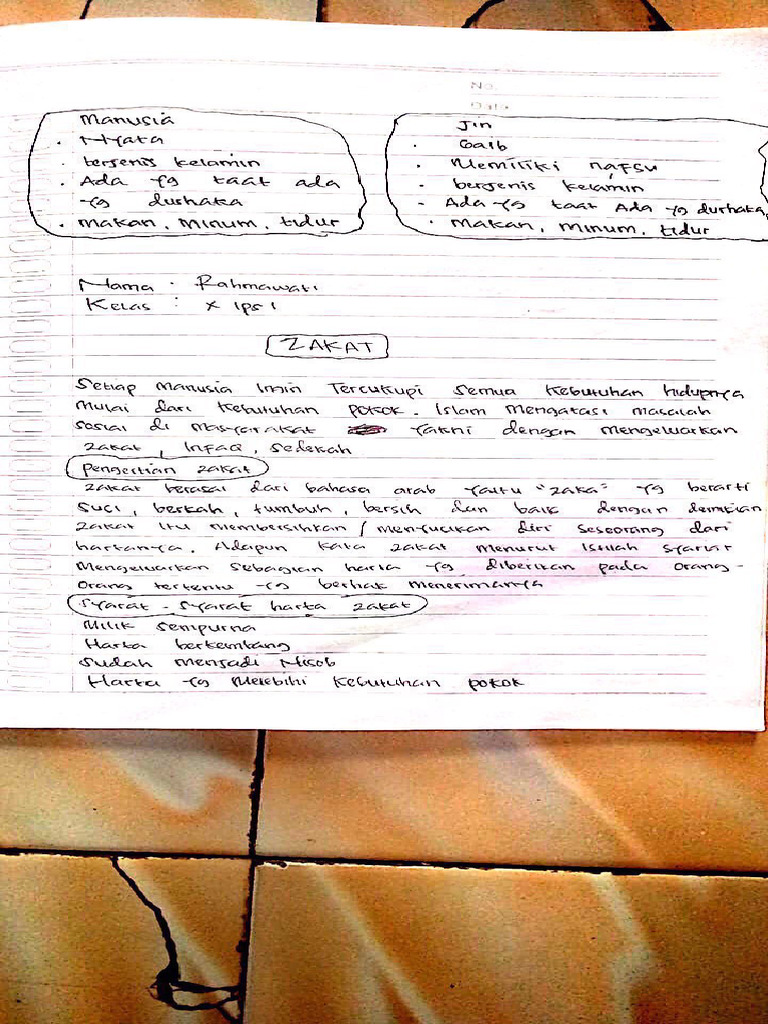 No.
Date
Manusia
. Nyata
. berjenis kelamin
. Ada yg taat ada
yg durhaka
. Makan, minum, tidur
Jin
. Gaib
. Memiliki nafsu
- berjenis kelamin
- Ada yg taat Ada yg durhaka
. Makan, minum, tidur
Nama : Rahmawati
Kelas : X Ips 1
ZAKAT
Setiap manusia ingin Tercukupi semua kebutuhan hidupnya
mulai dari kebutuhan pokok. Islam mengatasi masalah
sosial di masyarakat yakni dengan mengeluarkan
zakat, infaq, sedekah
pengertian zakat
zakat berasal dari bahasa arab yaitu "zaka" yg berarti
suci, berkah, tumbuh, bersih dan baik dengan demikian
zakat itu membersihkan / mensucikan diri seseorang dari
hartanya. Adapun kata zakat menurut istilah syariat
mengeluarkan sebagian harta yg diberikan pada orang-
orang tertentu yg berhak menerimanya
syarat - syarat harta zakat
Milik sempurna
Harta berkembang
Sudah menjadi Nisob
Harta yg Melebihi kebutuhan pokok